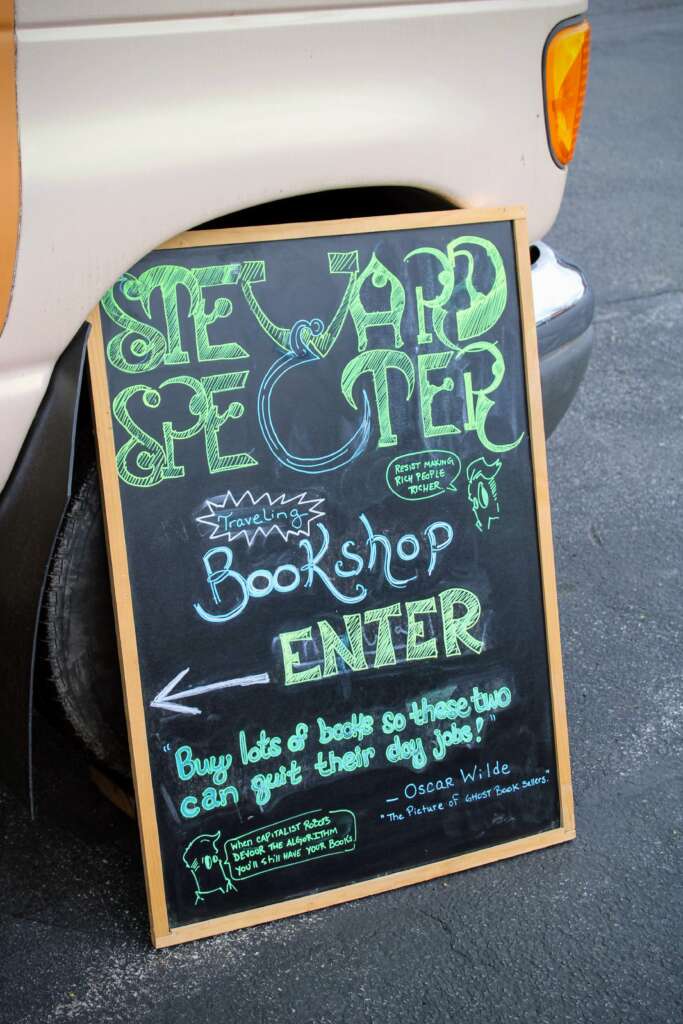 STEWARD
SPECTER
RESIST MAKING
RICH PEOPLE
RICHER
Traveling
Bookshop
ENTER
"Buy lots of books so these two
can quit their day jobs!"
— Oscar Wilde
"The Picture of GHOST Book Sellers."
When CAPITALIST Robots
DEVOUR THE ALGORITHM
You'll still HAVE YOUR BOOKS.